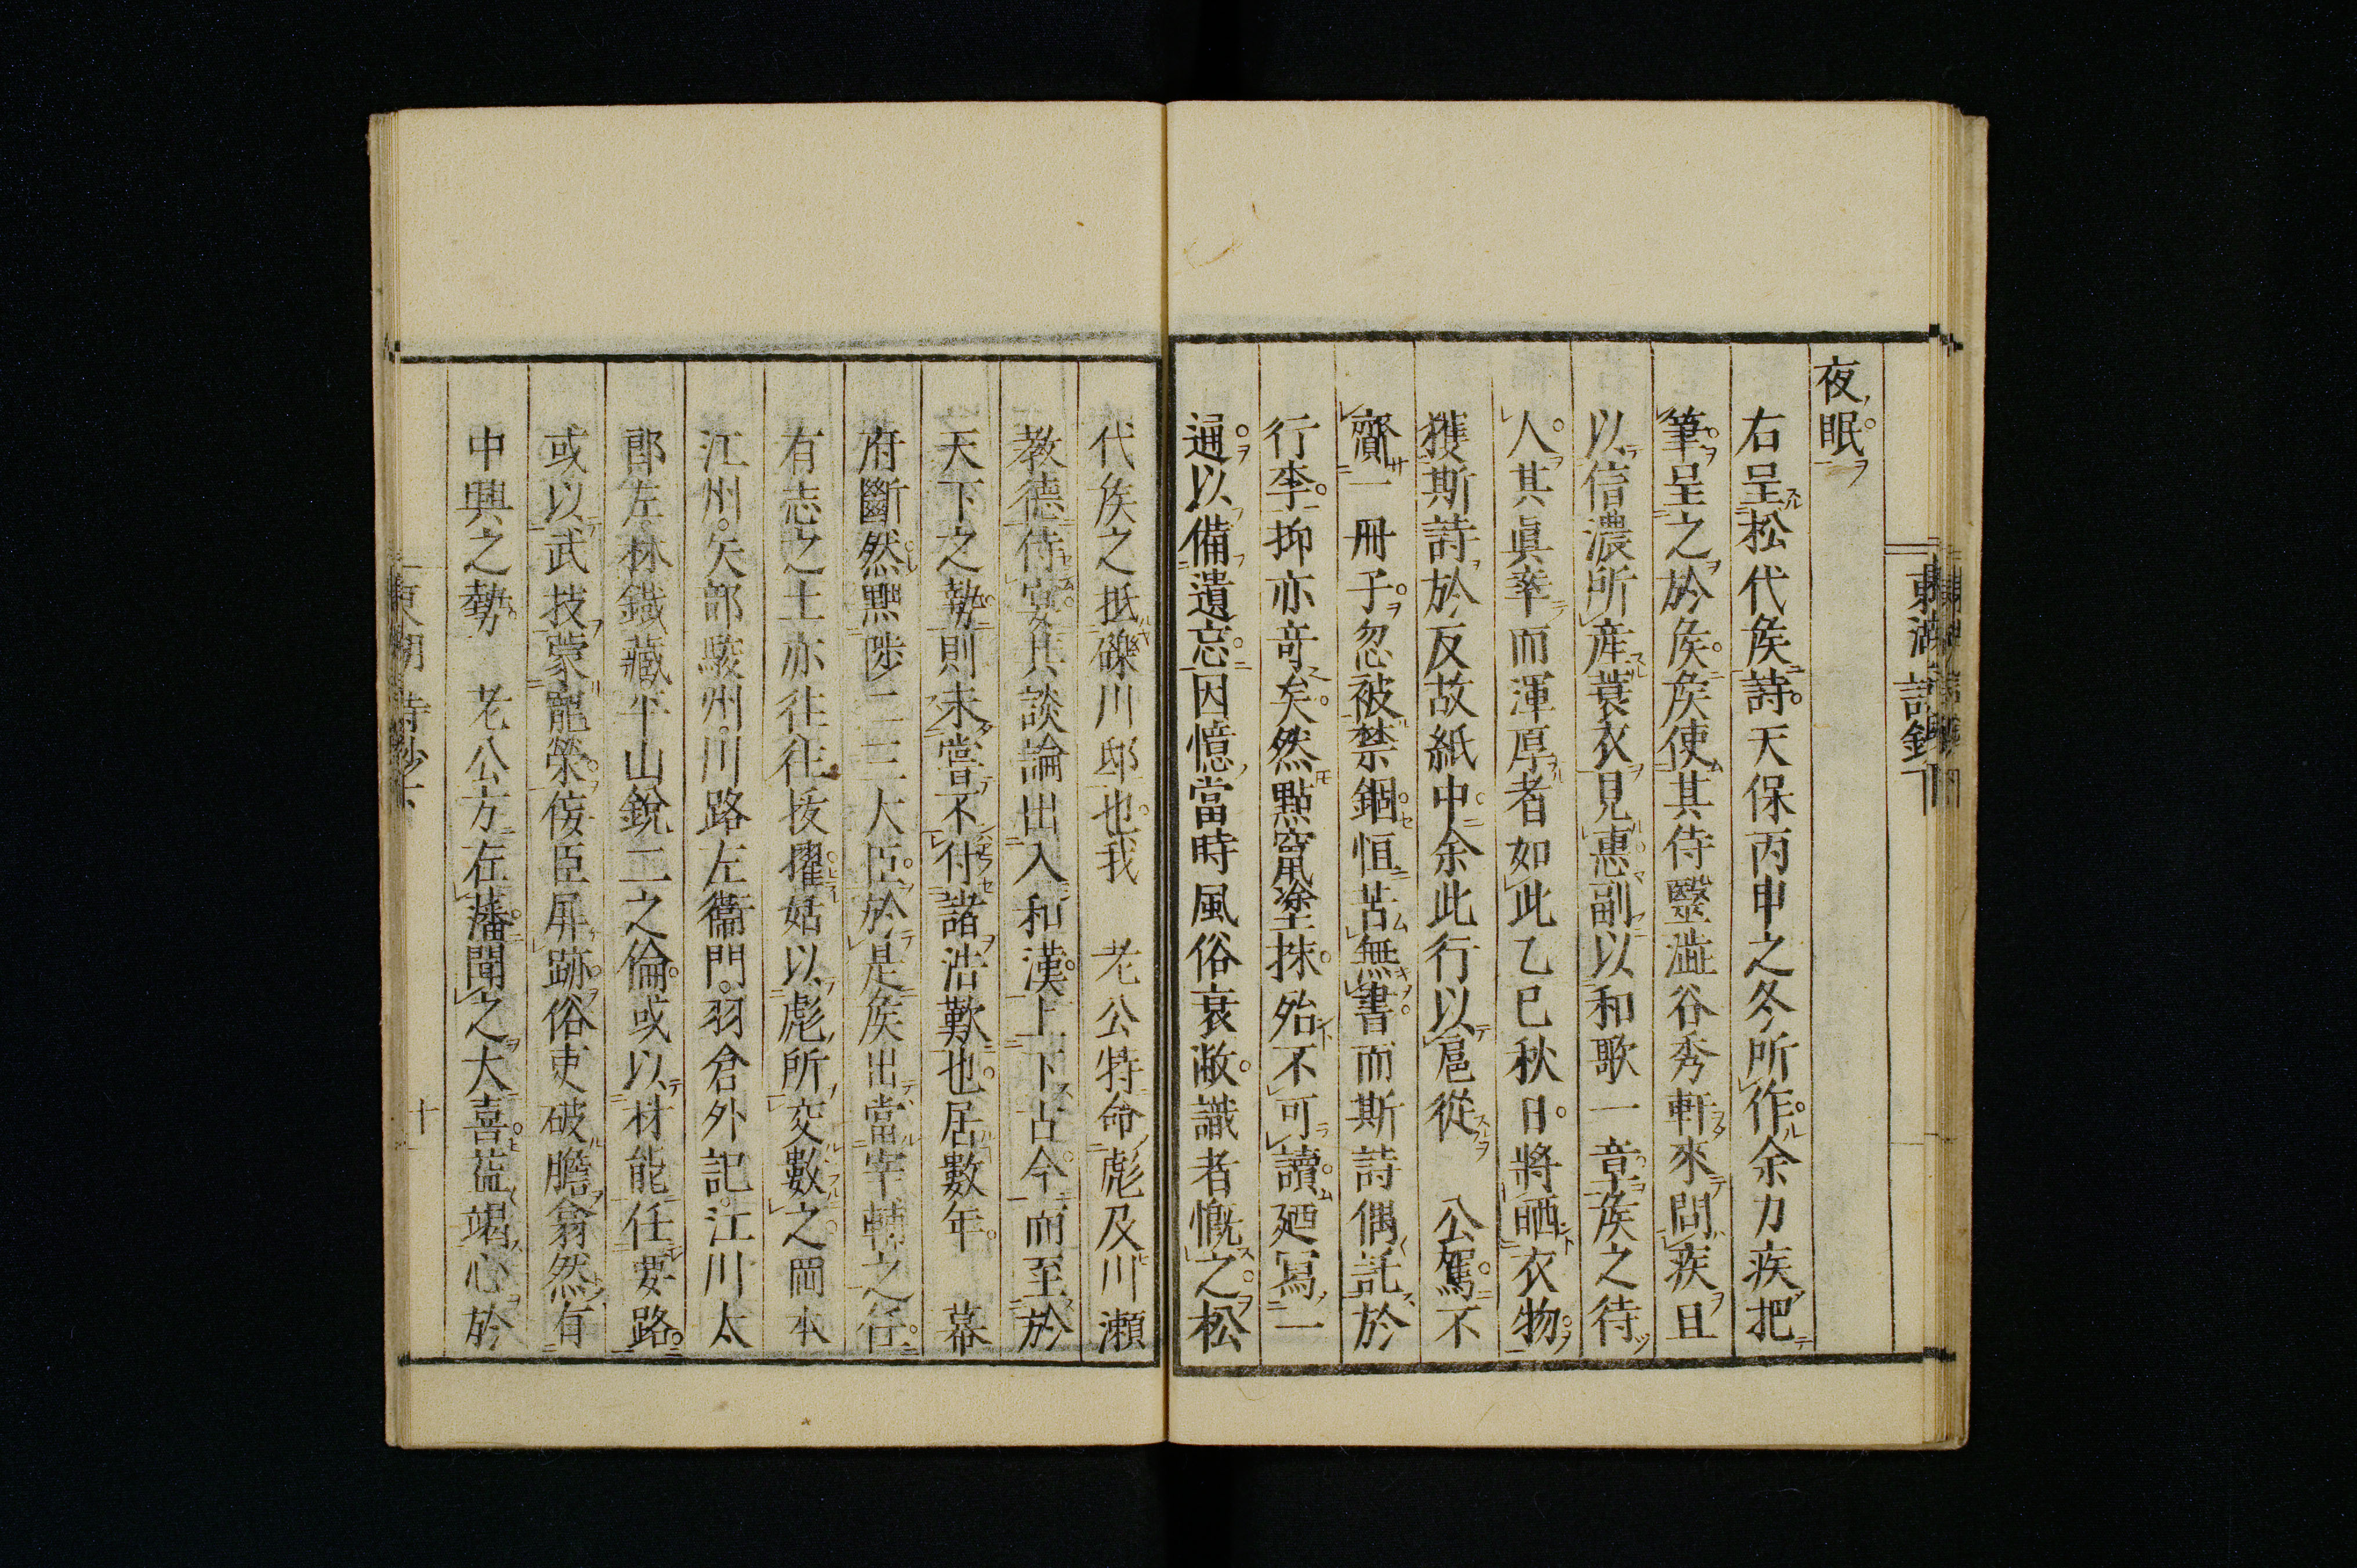 東湖詩鈔下
夜眠
右呈松代矦詩天保丙申之冬所作余力疾把
筆呈之於矦矦使其侍毉澁谷秀軒來問疾且
以信濃所産蓑衣見惠副以和歌一章矦之待
人其眞率而渾厚者如此乙巳秋日將晒衣物
獲斯詩於反故紙中余此行以扈從　公駕不
齎一冊子忽被禁錮恒苦無書而斯詩偶託於
行李抑亦奇矣然點竄塗抹殆不可讀廼寫一
通以備遺忘因憶當時風俗衰敝識者慨之松
代矦之抵礫川邸也我　老公特命彪及川瀬
教德侍宴其談論出入和漢上下古今而至於
天下之勢則未嘗不付諸浩歎也居數年　幕
府斷然黜陟二三大臣於是矦出當宰輔之任
有志之士亦往往拔擢姑以彪所交數之岡本
江州矢部駿州川路左衞門羽倉外記江川太
郎左林鐵藏平山銳二之倫或以材能任要路
或以武技蒙寵榮侫臣屏跡俗吏破膽翕然有
中興之勢　老公方在藩聞之大喜益竭心於
東湖詩鈔下
十